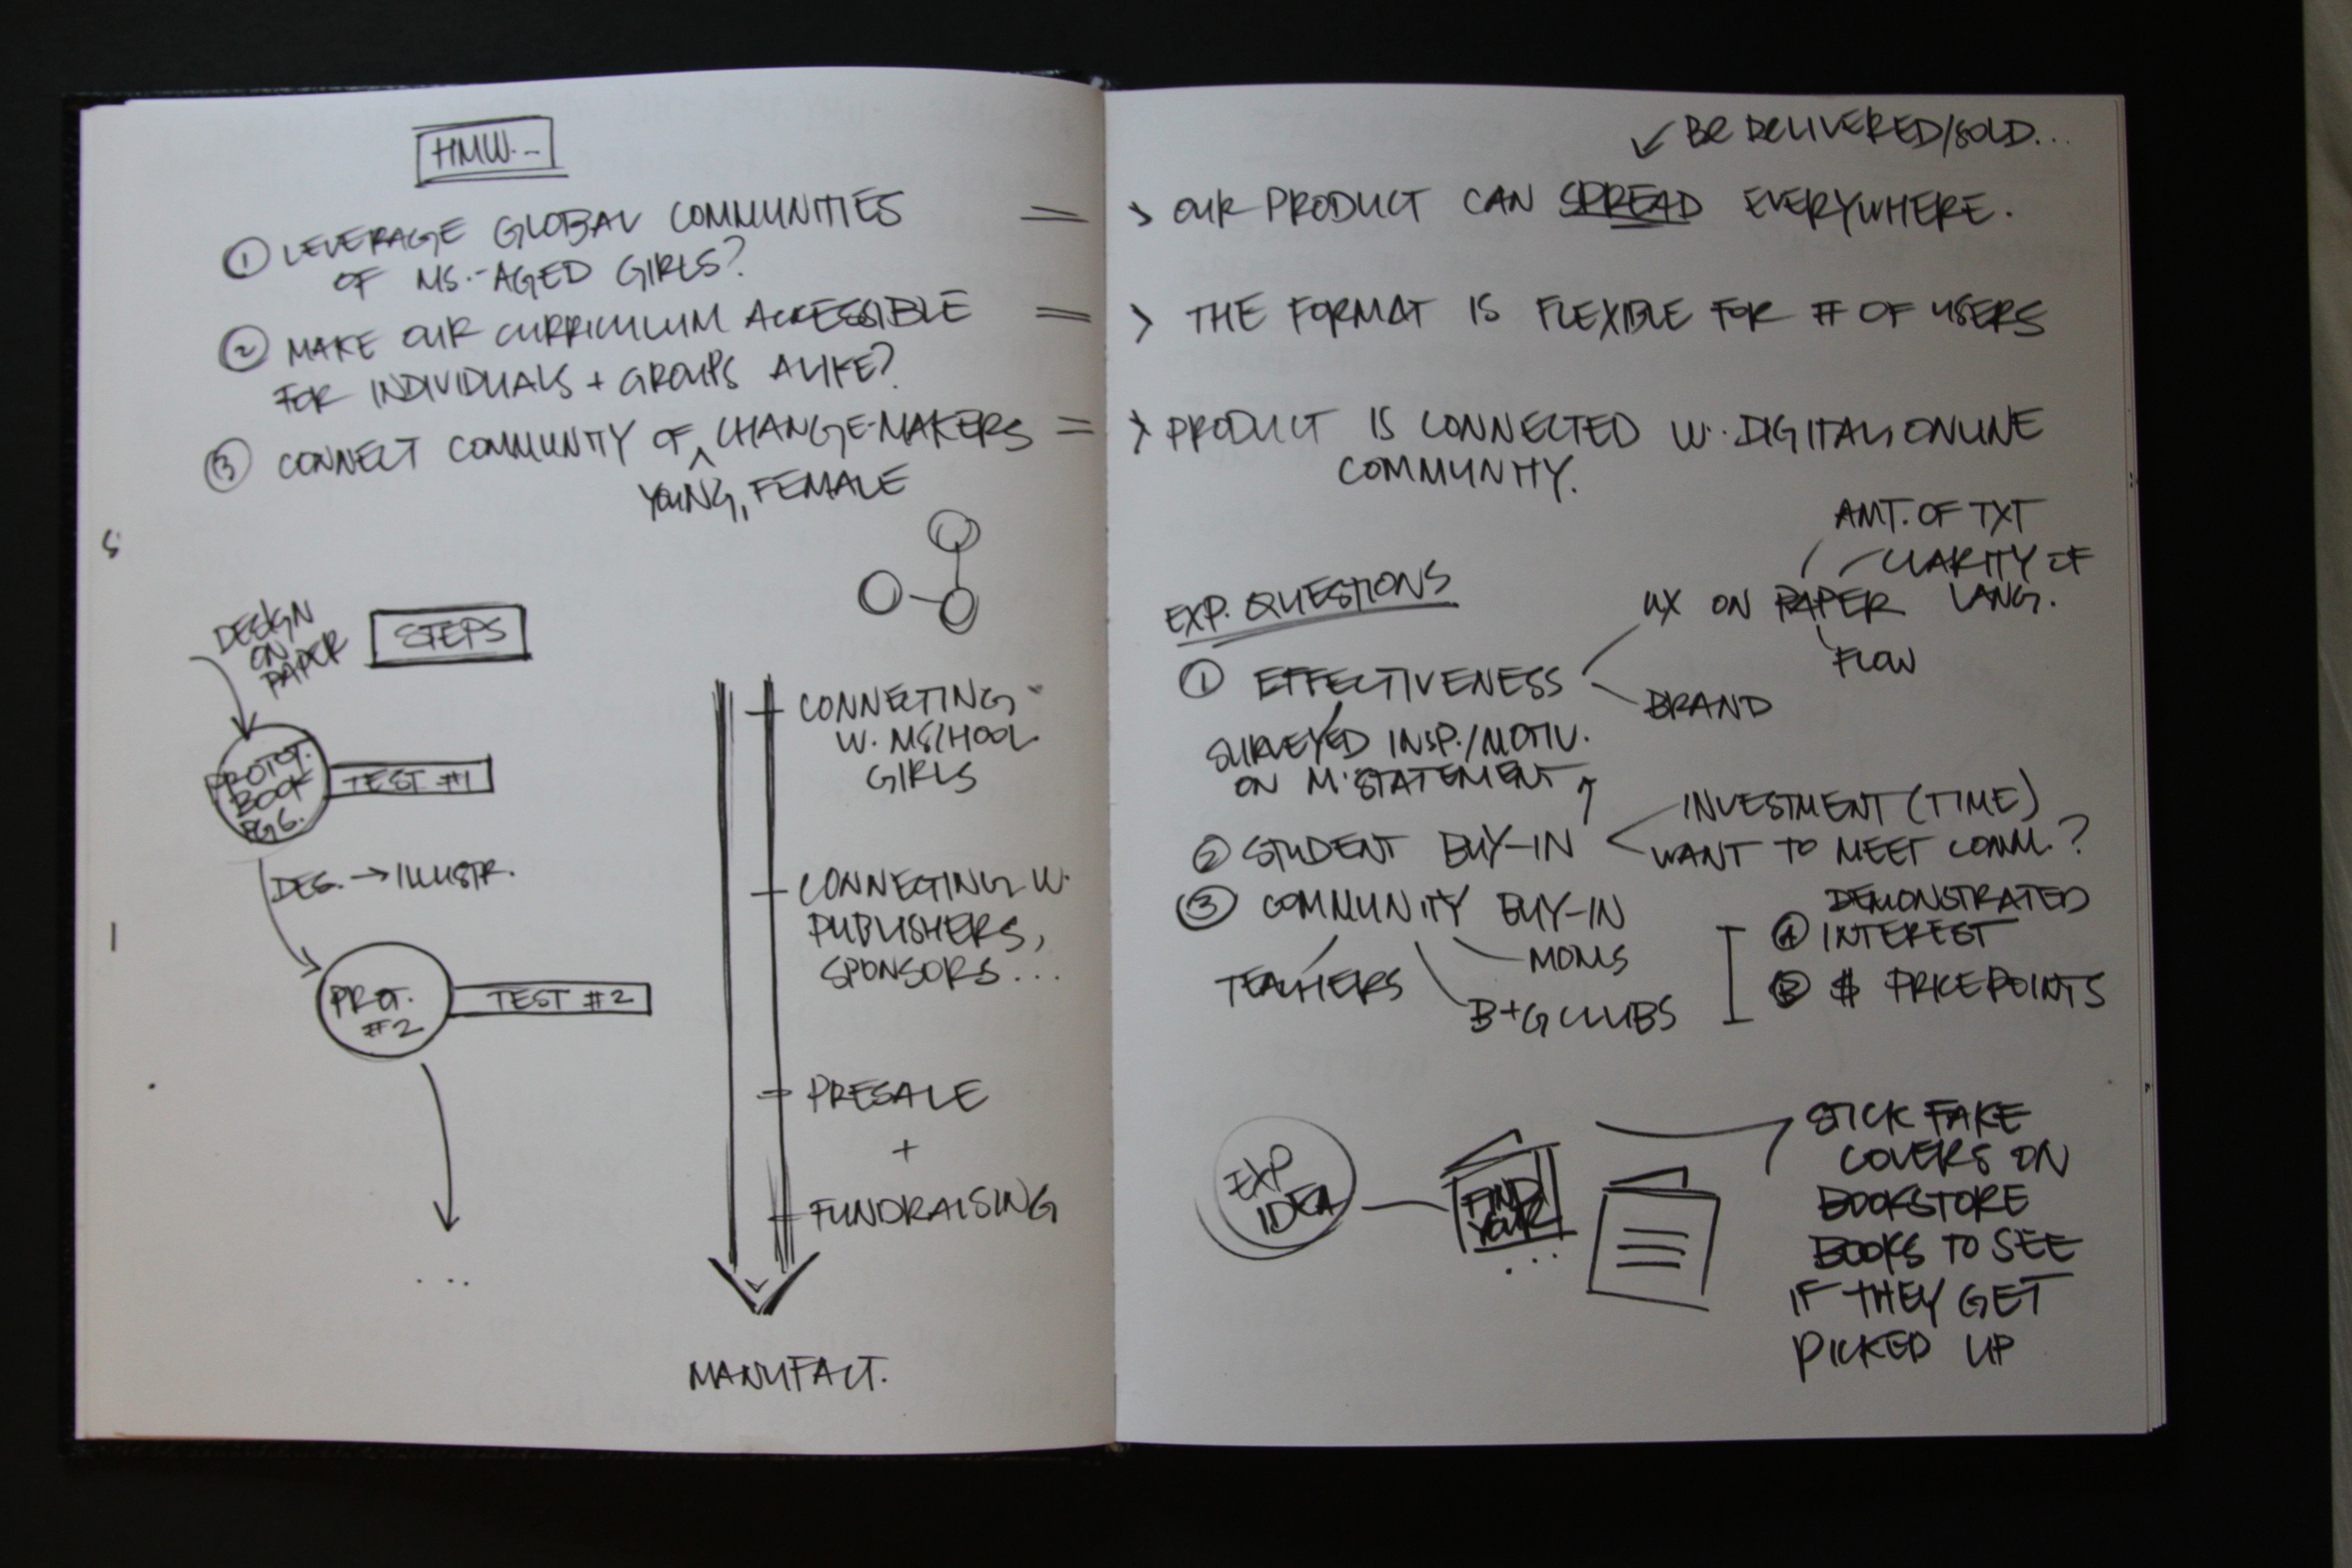 HMW...
① LEVERAGE GLOBAL COMMUNITIES
OF MS.-AGED GIRLS?
② MAKE OUR CURRICULUM ACCESSIBLE
FOR INDIVIDUALS + GROUPS ALIKE?
③ CONNECT COMMUNITY OF ^ CHANGE-MAKERS
YOUNG, FEMALE
DESIGN
ON
PAPER
STEPS
PROTOT.
BOOK
PG 6.
TEST #1
DES. → ILLUSTR.
PROT.
#2
TEST #2
...
CONNECTING
W. MSCHOOL
GIRLS
CONNECTING W.
PUBLISHERS,
SPONSORS...
PRESALE
+
FUNDRAISING
MANUFACT.
BE DELIVERED/SOLD...
OUR PRODUCT CAN SPREAD EVERYWHERE.
THE FORMAT IS FLEXIBLE FOR # OF USERS
PRODUCT IS CONNECTED W. DIGITAL, ONLINE
COMMUNITY.
EXP. QUESTIONS
AMT. OF TXT
CLARITY OF
LANG.
UX ON PAPER
FLOW
① EFFECTIVENESS
BRAND
SURVEYED INSP./MOTIV.
ON M. STATEMENT
② STUDENT BUY-IN
INVESTMENT (TIME)
WANT TO MEET COMM.?
③ COMMUNITY BUY-IN
TEACHERS
MOMS
B+G CLUBS
Ⓐ DEMONSTRATED
INTEREST
Ⓑ $ PRICEPOINTS
EXP
IDEA
FIND
YOUR
...
STICK FAKE
COVERS ON
BOOKSTORE
BOOKS TO SEE
IF THEY GET
PICKED UP